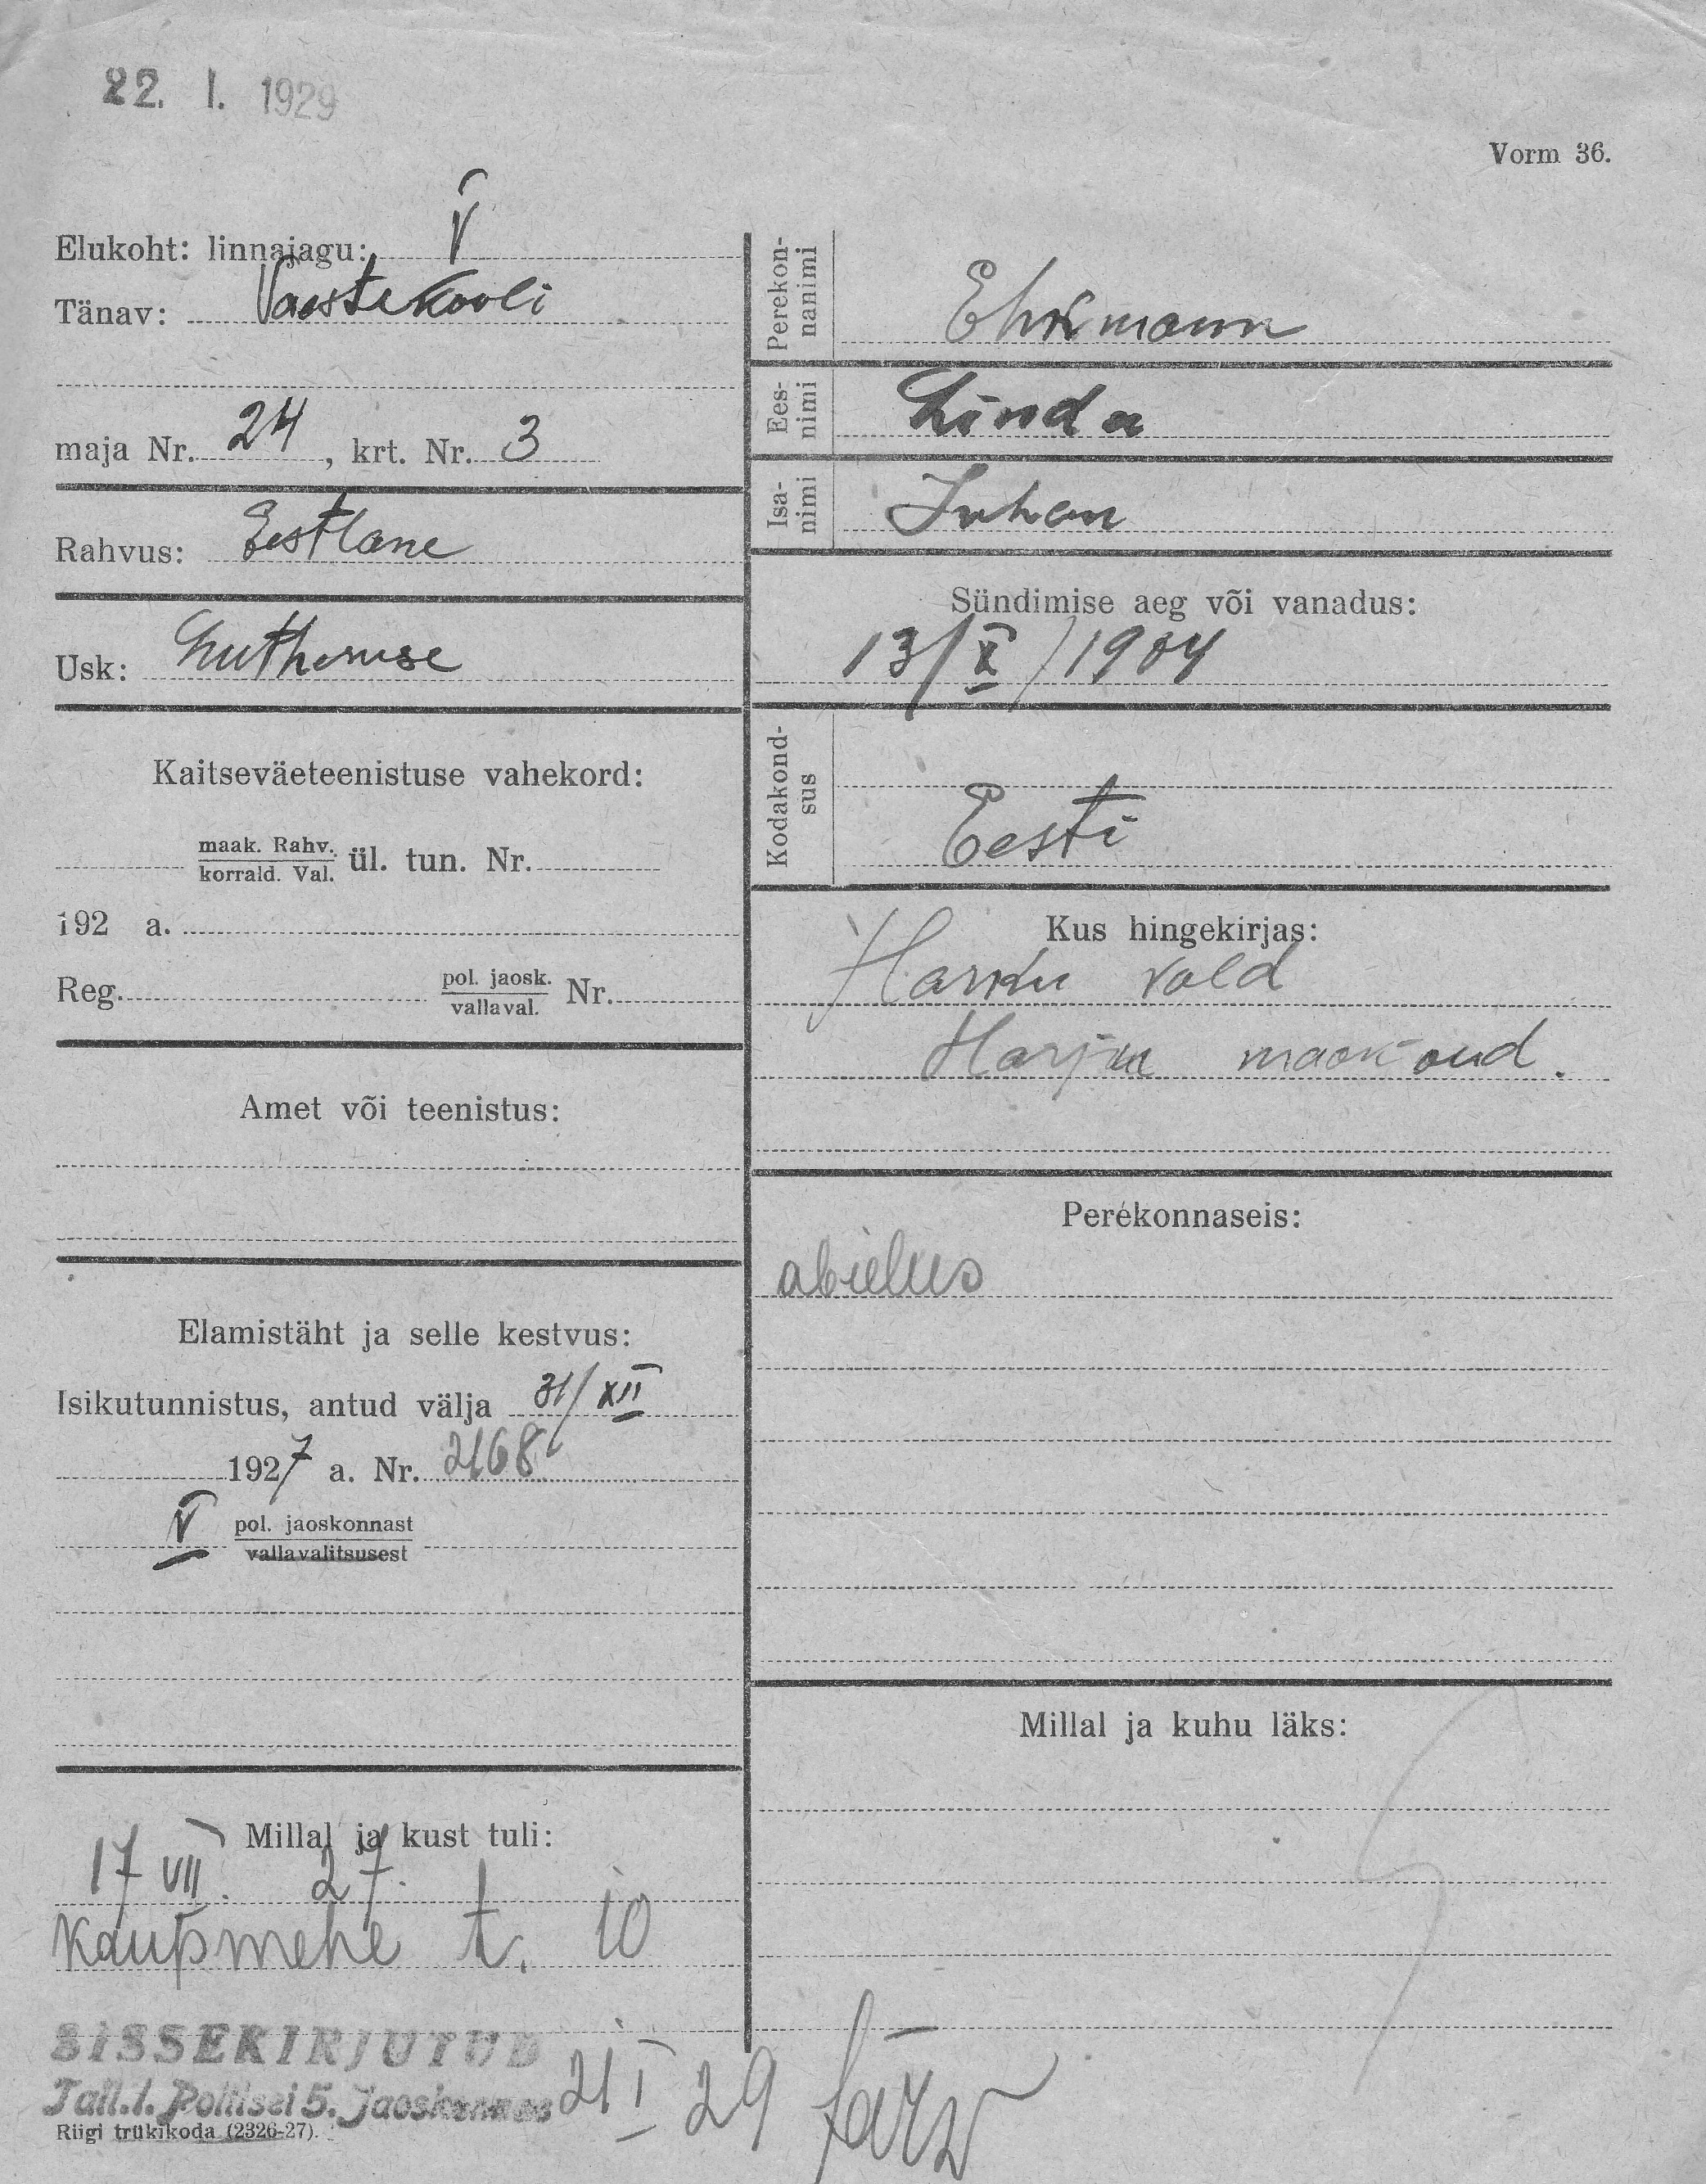 22. I. 1929
Vorm 36.
Elukoht: linnajagu: V
Tänav: Vaestekooli
maja Nr. 24, krt. Nr. 3
Rahvus: Eestlane
Usk: Lutheruse
Kaitseväeteenistuse vahekord:
maak. Rahv.
korrald. Val. ül. tun. Nr.
192 a.
Reg. pol. jaosk.
vallaval. Nr.
Amet või teenistus:
Elamistäht ja selle kestvus:
Isikutunnistus, antud välja 31/XII
1927 a. Nr. 2168
V pol. jaoskonnast
vallavalitsusest
Millal ja kust tuli:
17 VII. 27.
Kaupmehe t. 10
SISSEKIRJUTUD
Tall.l. Politsei 5. Jaoskonnas 21 I 29
Riigi trükikoda (2326-27).
Perekon-
nanimi
Ehrmann
Ees-
nimi
Linda
Isa-
nimi
Juhan
Sündimise aeg või vanadus:
13/X/1904
Kodakond-
sus
Eesti
Kus hingekirjas:
Harku vald
Harju maakond.
Perekonnaseis:
abielus
Millal ja kuhu läks: